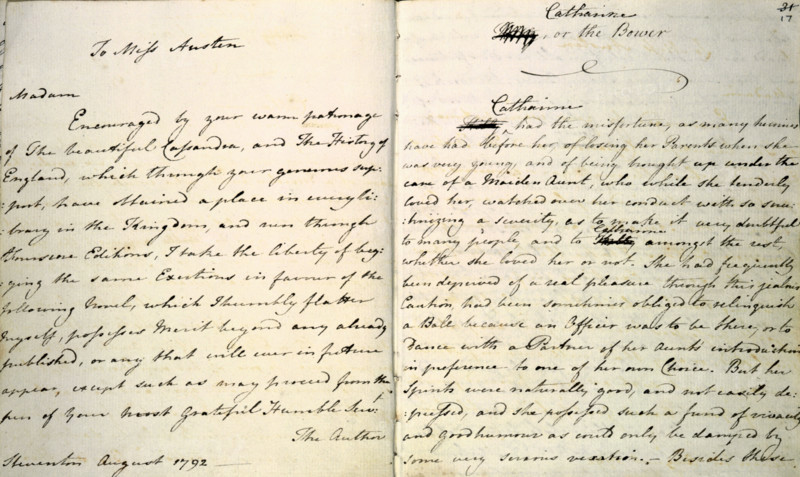 To Miss Austen
Madam
Encouraged by your warm patronage
of The beautiful Cassandra, and The History of
England, which through your generous sup-
:port, have obtained a place in every li-
:brary in the Kingdom, and run through
threescore Editions, I take the liberty of beg-
:ging the same Exertions in favour of the
following Novel, which I humbly flatter
myself, possesses Merit beyond any already
published, or any that will ever in future
appear, except such as may proceed from the
pen of your most Grateful Humble Servt.
The Author
Steventon August 1792 —
17
Catharine
, or the Bower
Catharine
had the misfortune, as many heroines
have had before her, of losing her Parents when she
was very young, and of being brought up under the
care of a Maiden Aunt, who while she tenderly
loved her, watched over her conduct with so scru-
:tinizing a severity, as to make it very doubtful
to many people, and to Catharine amongst the rest,
whether she loved her or not. She had frequently
been deprived of a real pleasure through this jealous
Caution, had been sometimes obliged to relinquish
a Ball because an Officer was to be there, or to
Dance with a Partner of her Aunt's introduction
in preference to one of her own Choice. But her
Spirits were naturally good, and not easily de-
:pressed, and she possessed such a fund of vivacity
and good humour as could only be damped by
some very serious vexation. — Besides these